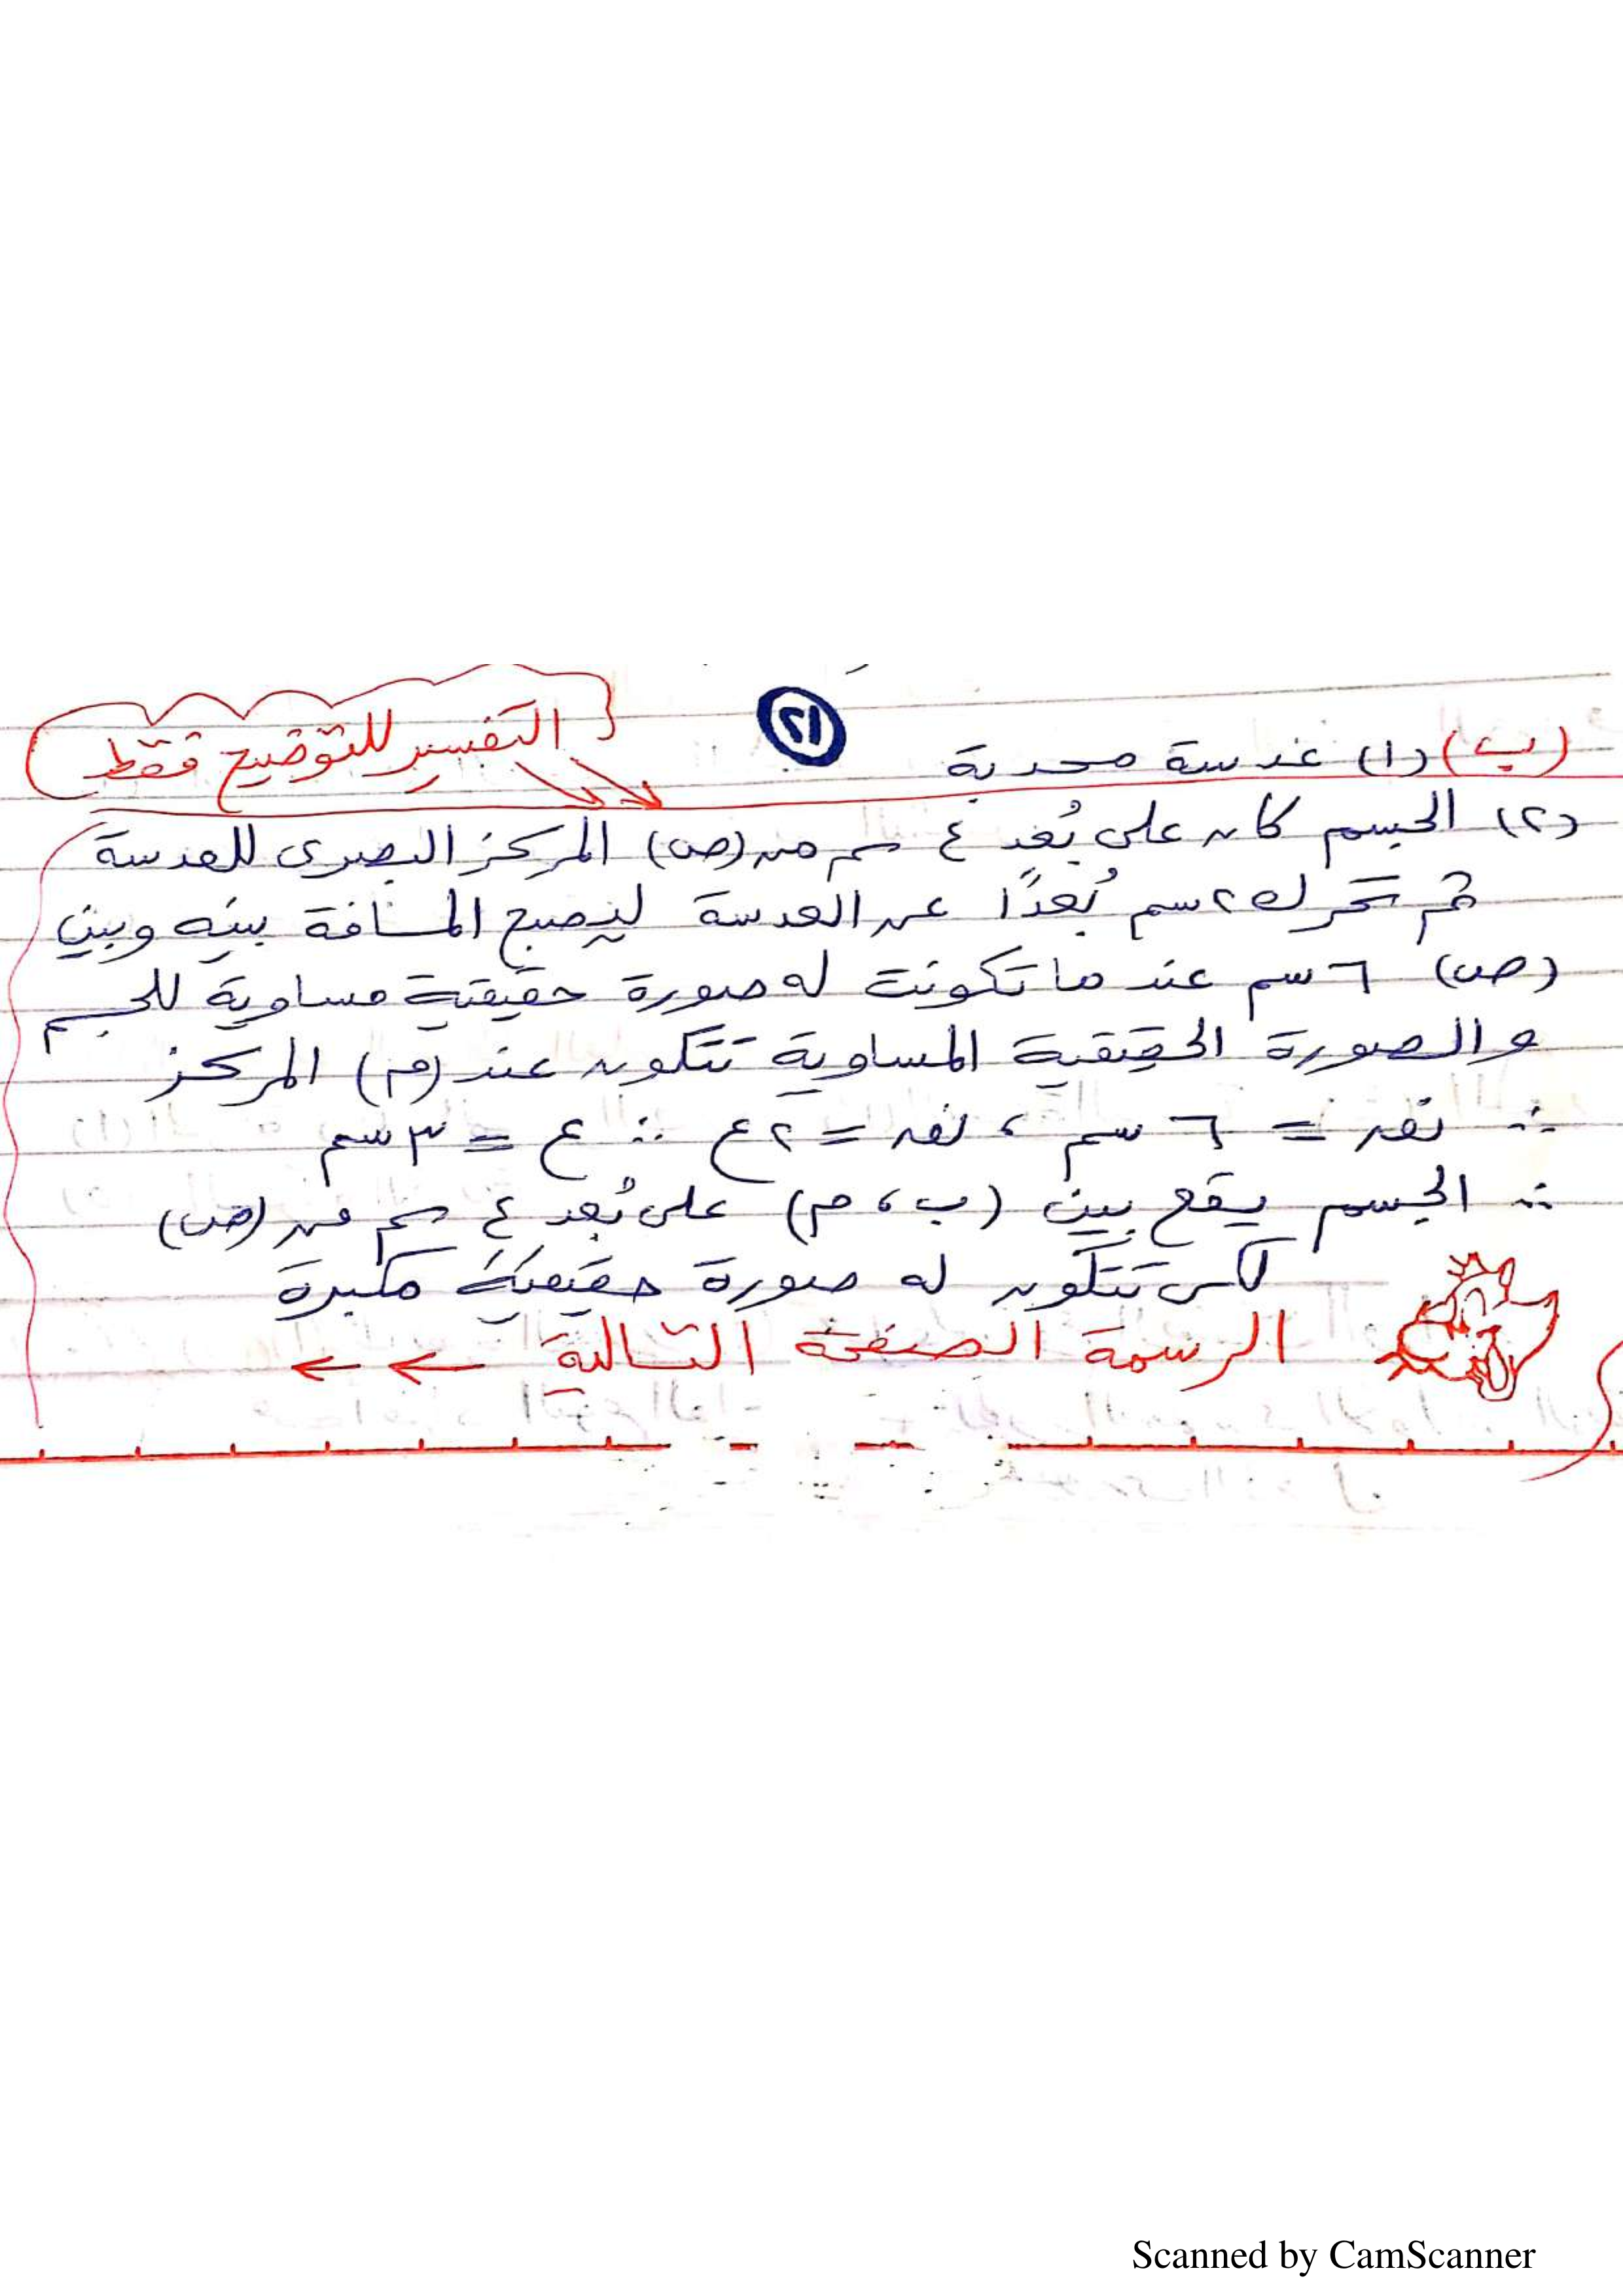 ٢١
(ب) (١) عدسة محدبة
التفسير للتوضيح فقط
(٢) الجسم كان على بُعد ٤ سم من (ص) المركز البصرى للعدسة
ثم تحرك ٢ سم بُعدًا عن العدسة ليصبح المسافة بينه وبين
(ص) ٦ سم عند ما تكونت له صورة حقيقية مساوية للجسم
والصورة الحقيقية المساوية تتكون عند (م) المركز
∴ نق = ٦ سم ، نق = ٢ع ∴ ع = ٣ سم
∴ الجسم يقع بين (ب ، م) على بُعد ٤ سم من (ص)
لكى تتكون له صورة حقيقية مكبرة
الرسمة الصفحة التالية ← ←
Scanned by CamScanner